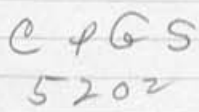 C P G S
5202